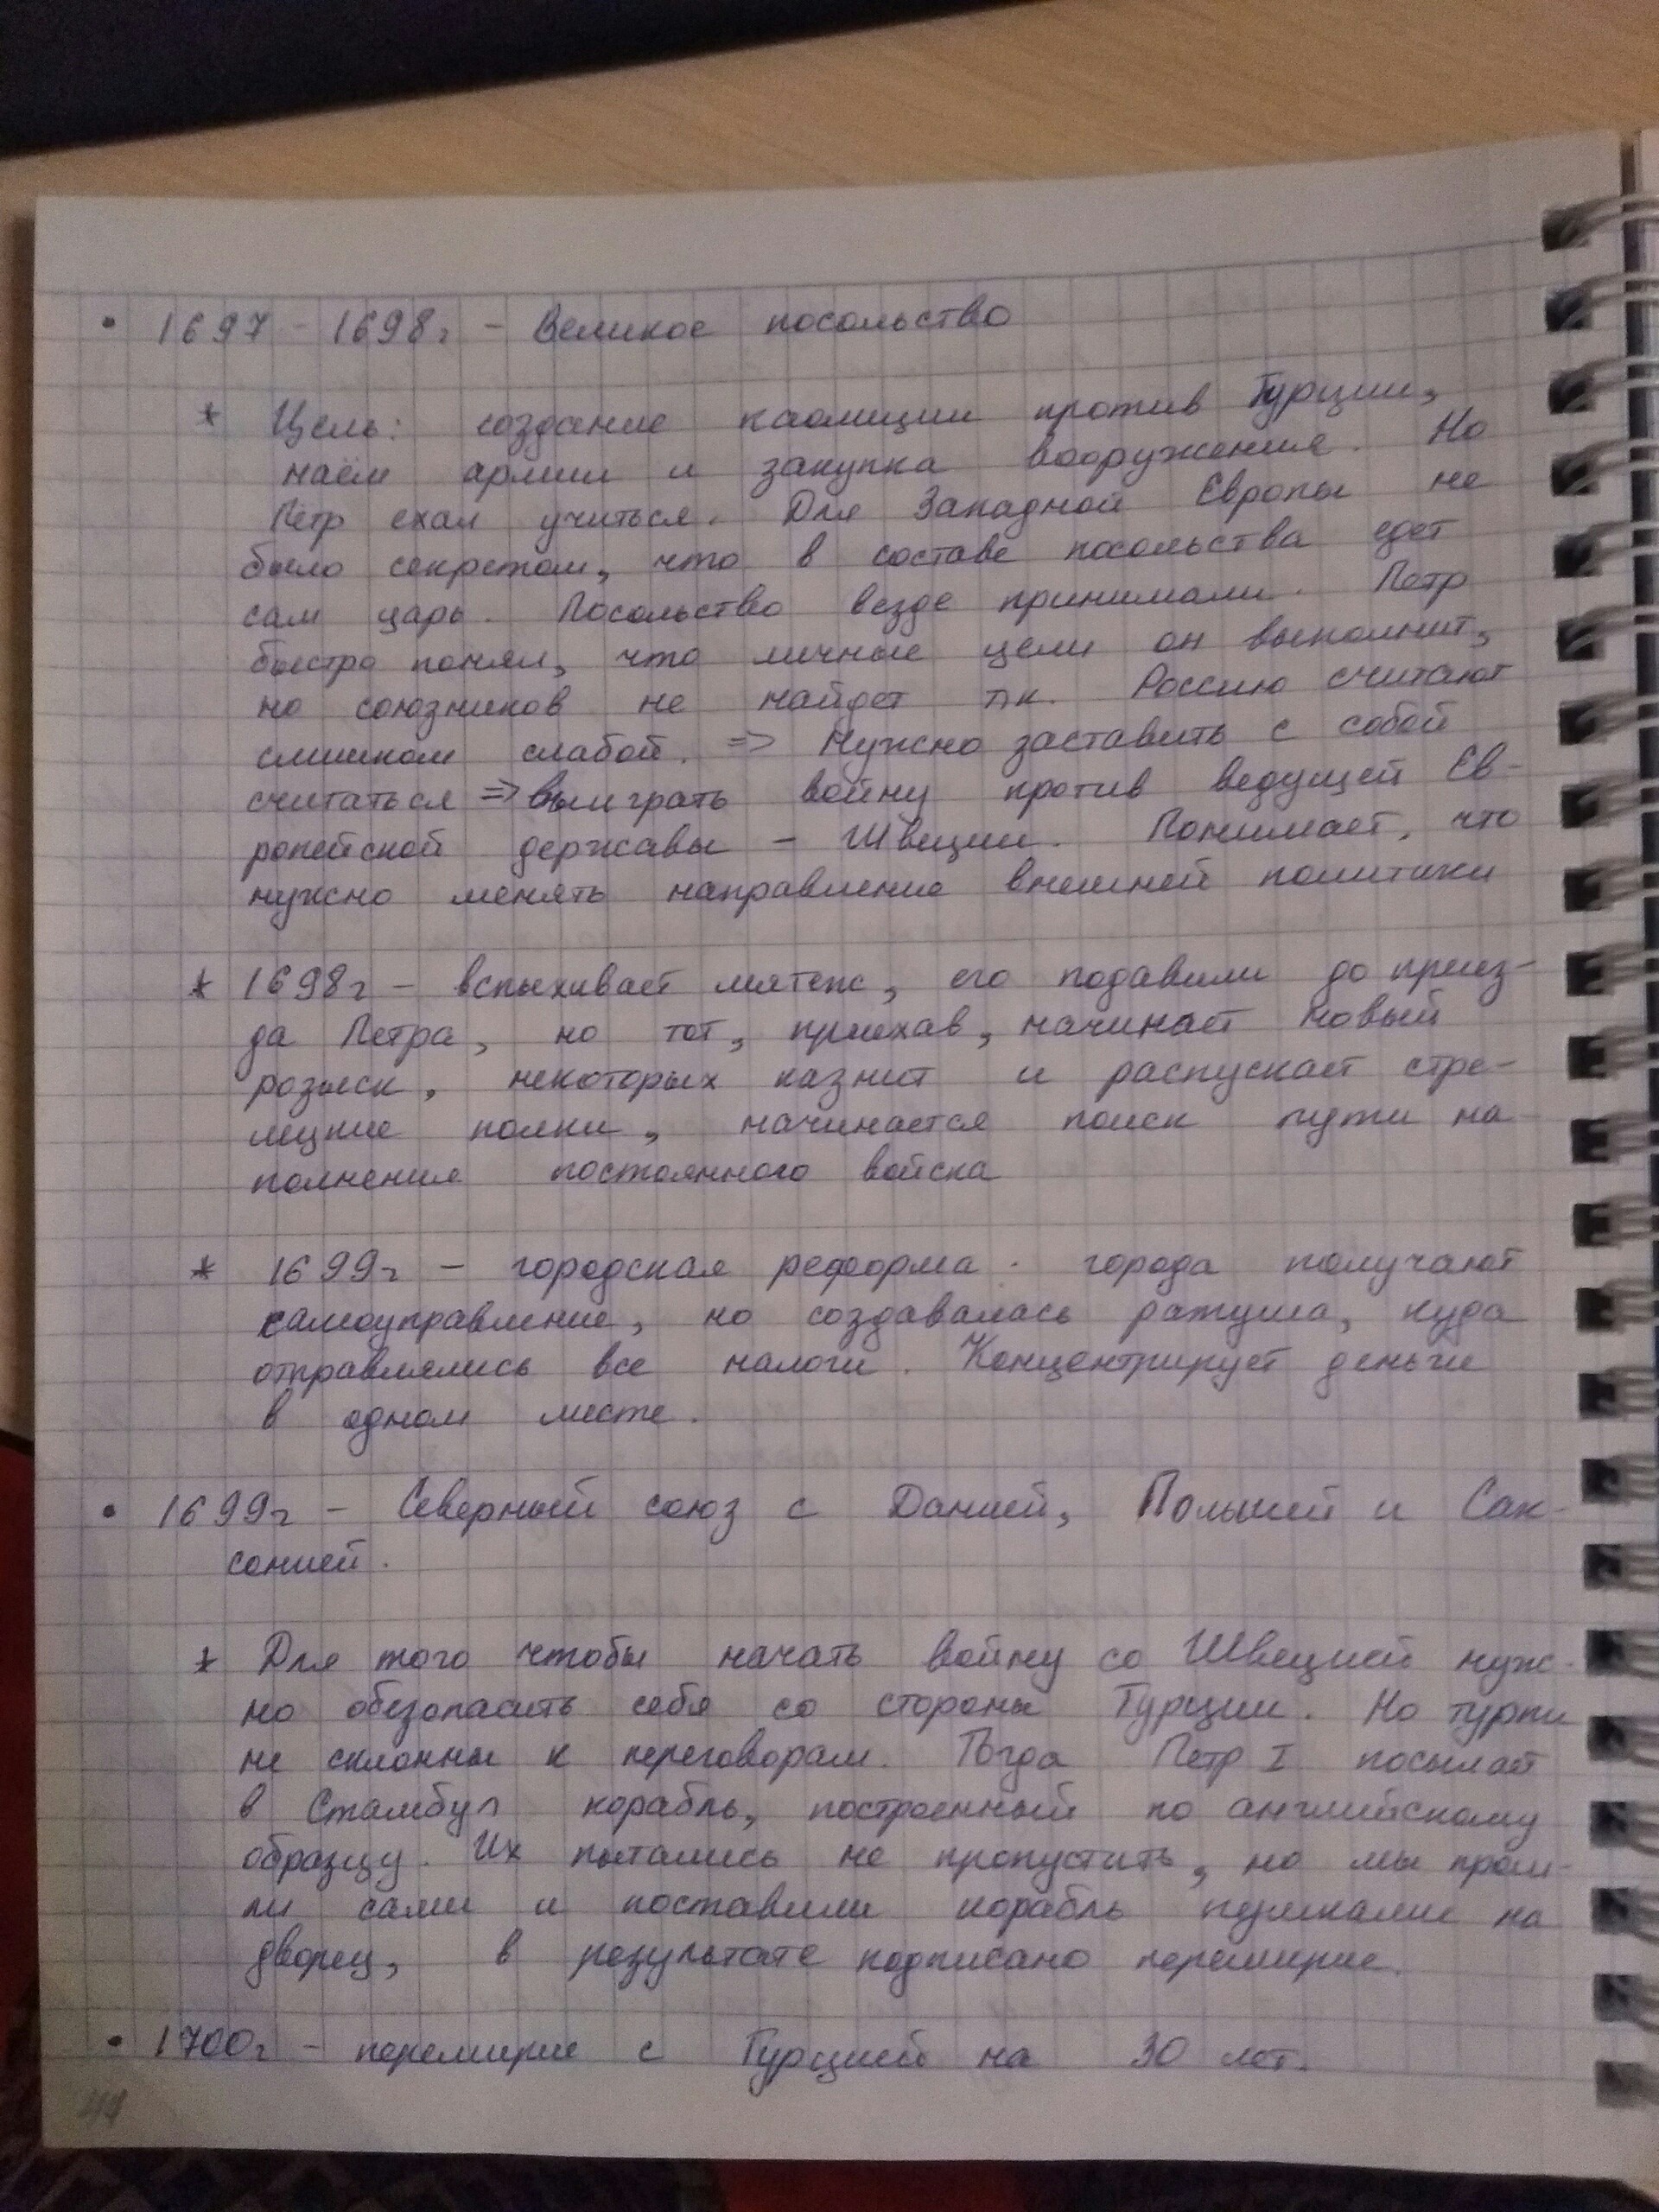 • 1697 - 1698г - Великое посольство
* Цель: создание каолиции против Турции,
наём армии и закупка вооружения. Но
Пётр ехал учиться. Для Западной Европы не
было секретом, что в составе посольства едет
сам царь. Посольство везде принимали. Петр
быстро понял, что личные цели он выполнит,
но союзников не найдет т.к. Россию считают
слишком слабой. => Нужно заставить с собой
считаться => выиграть войну против ведущей Ев-
ропейской державы - Швеции. Понимает, что
нужно менять направление внешней политики
* 1698г - вспыхивает мятеж, его подавили до приез-
да Петра, но тот, приехав, начинает новый
розыск, некоторых казнит и распускает стре-
лецкие полки, начинается поиск пути на-
полнения постоянного войска
* 1699г - городская реформа. города получают
самоуправление, но создавалась ратуша, куда
отправлялись все налоги. Концентрирует деньги
в одном месте.
• 1699г - Северный союз с Данией, Польшей и Сак-
сонией.
* Для того чтобы начать войну со Швецией нуж-
но обезопасить себя со стороны Турции. Но турки
не склонны к переговорам. Тогда Петр I посылает
в Стамбул корабль, построенный по английскому
образцу. Их пытались не пропустить, но мы прош-
ли сами и поставили корабль пушками на
дворец, в результате подписано перемирие.
• 1700г - перемирие с Турцией на 30 лет.